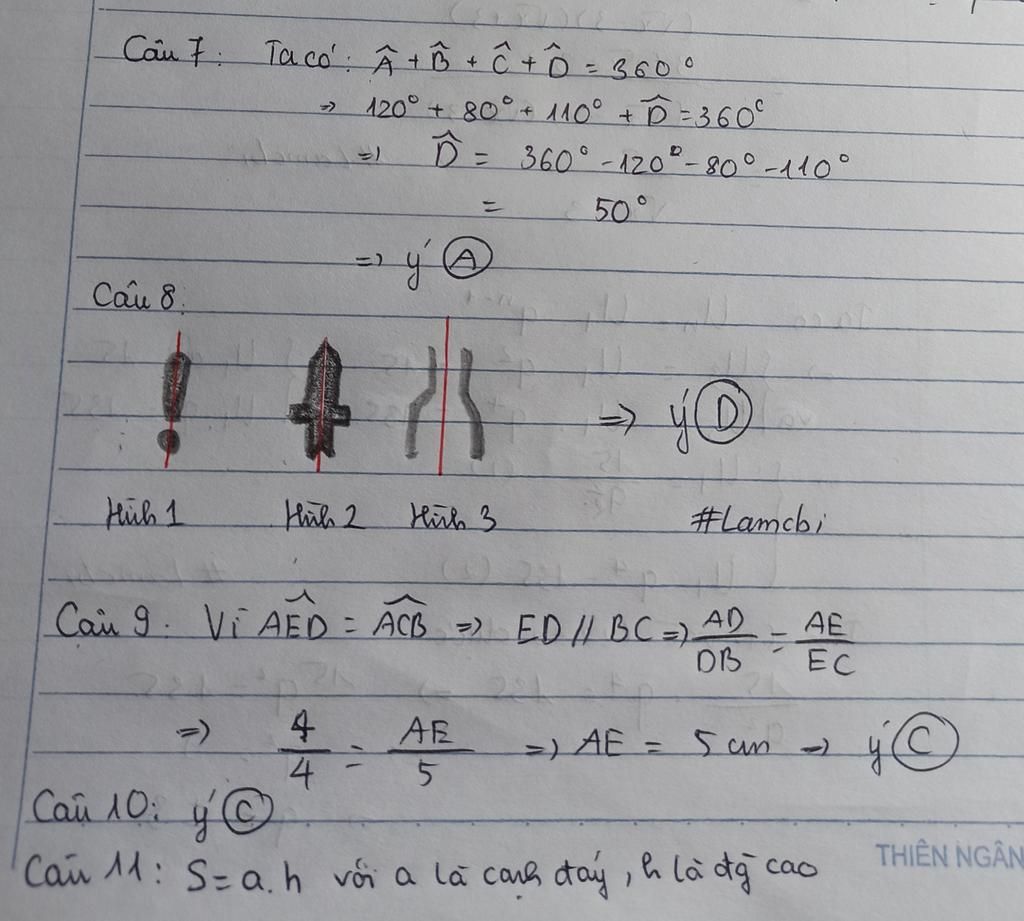 Câu 7: Ta có: Â + B̂ + Ĉ + D̂ = 360°
=> 120° + 80° + 110° + D̂ = 360°
=> D̂ = 360° - 120° - 80° - 110°
= 50°
=> ý Ⓐ
Câu 8:
=> ý Ⓓ
Hình 1 Hình 2 Hình 3 #Lamchi
Câu 9. Vì \widehat{AED} = \widehat{ACB} => ED // BC => AD/DB = AE/EC
=> 4/4 = AE/5 => AE = 5 cm -> ý Ⓒ
Câu 10: ý Ⓒ
THIÊN NGÂN
Câu 11: S = a.h với a là cạnh đáy, h là đg cao